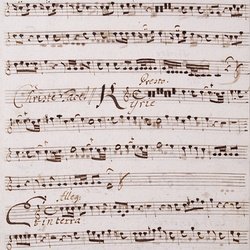 Presto.
Christe Tacet Kyrie
Alleg.
Et in terra